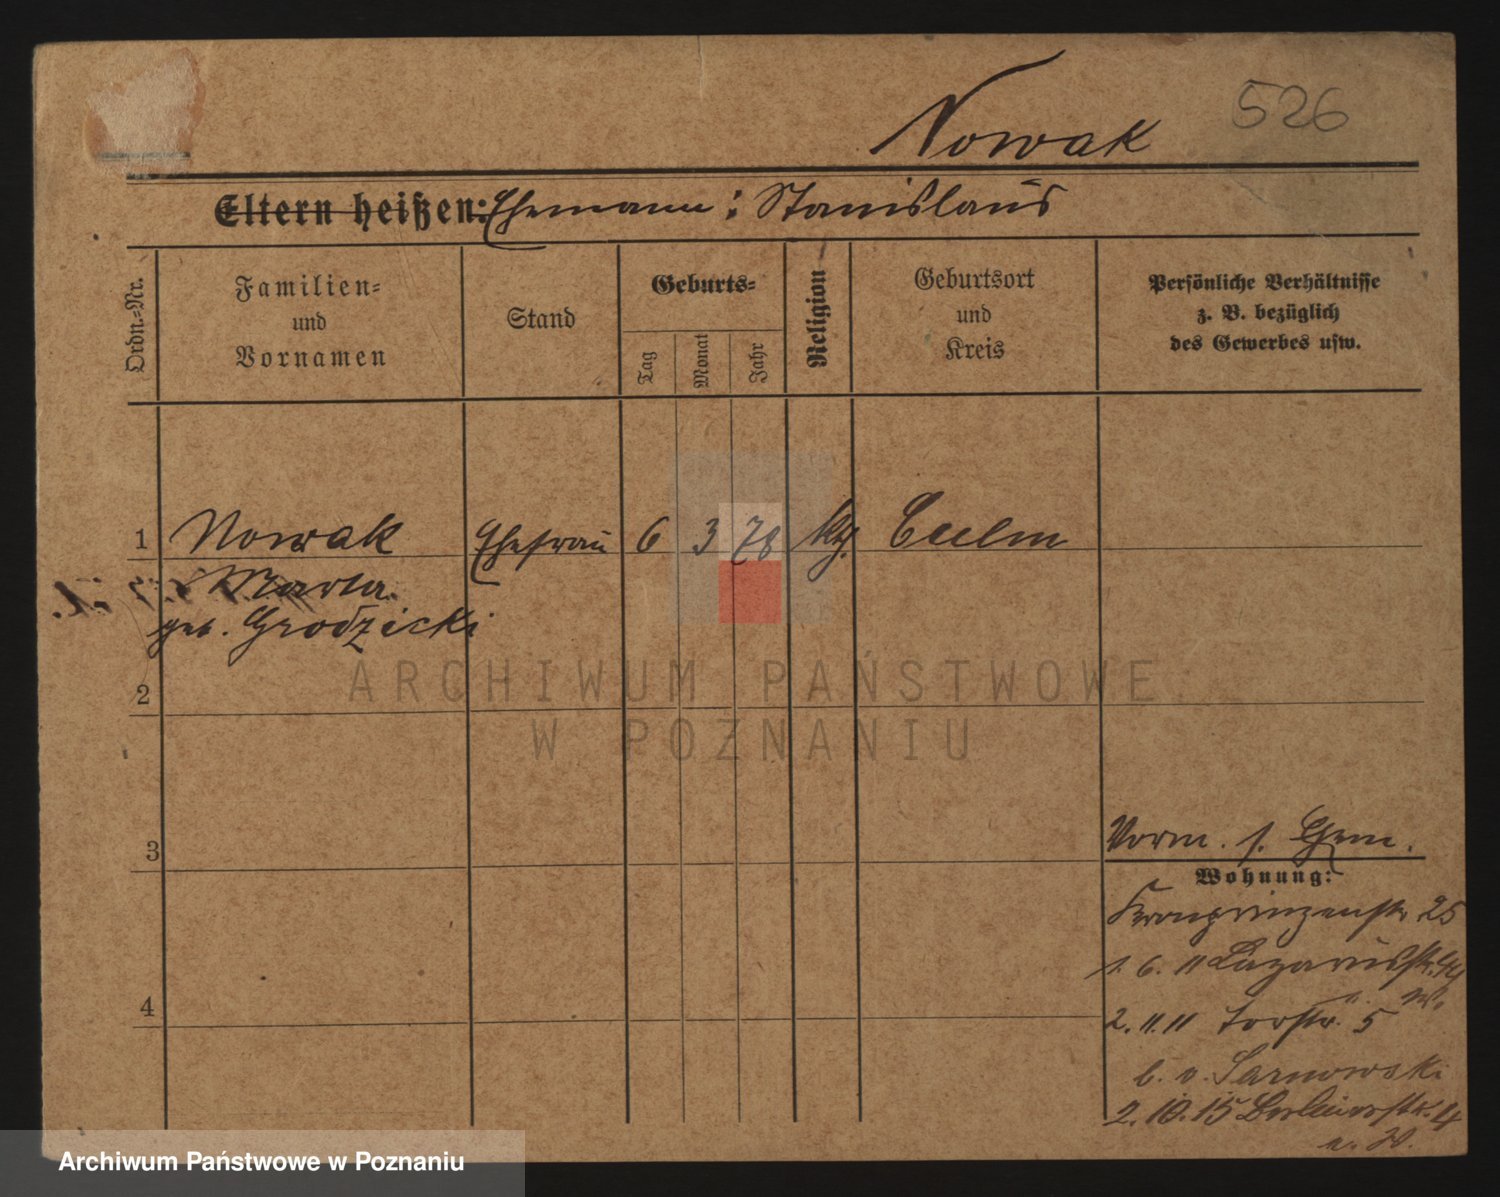 Nowak 526
Eltern heißen: Ehemann: Stanislaus
Ordn.-Nr.
Familien-
und
Vornamen
Stand
Geburts-
Tag
Monat
Jahr
Religion
Geburtsort
und
Kreis
Persönliche Verhältnisse
z. B. bezüglich
des Gewerbes usw.
1 Nowak Ehefrau 6 3 78 kth. Culm
Marta
geb. Grodzicki
2
3
Vorm. s. Ehem.
Wohnung:
Kronprinzenstr 25
1. 6. 11 Lazarusstr.
4
2. 11. 11 Torstr. 5
b. v. Sarnowski
2. 10. 15 Berlinerstr. 4
n. W.
ARCHIWUM PAŃSTWOWE
W POZNANIU
Archiwum Państwowe w Poznaniu